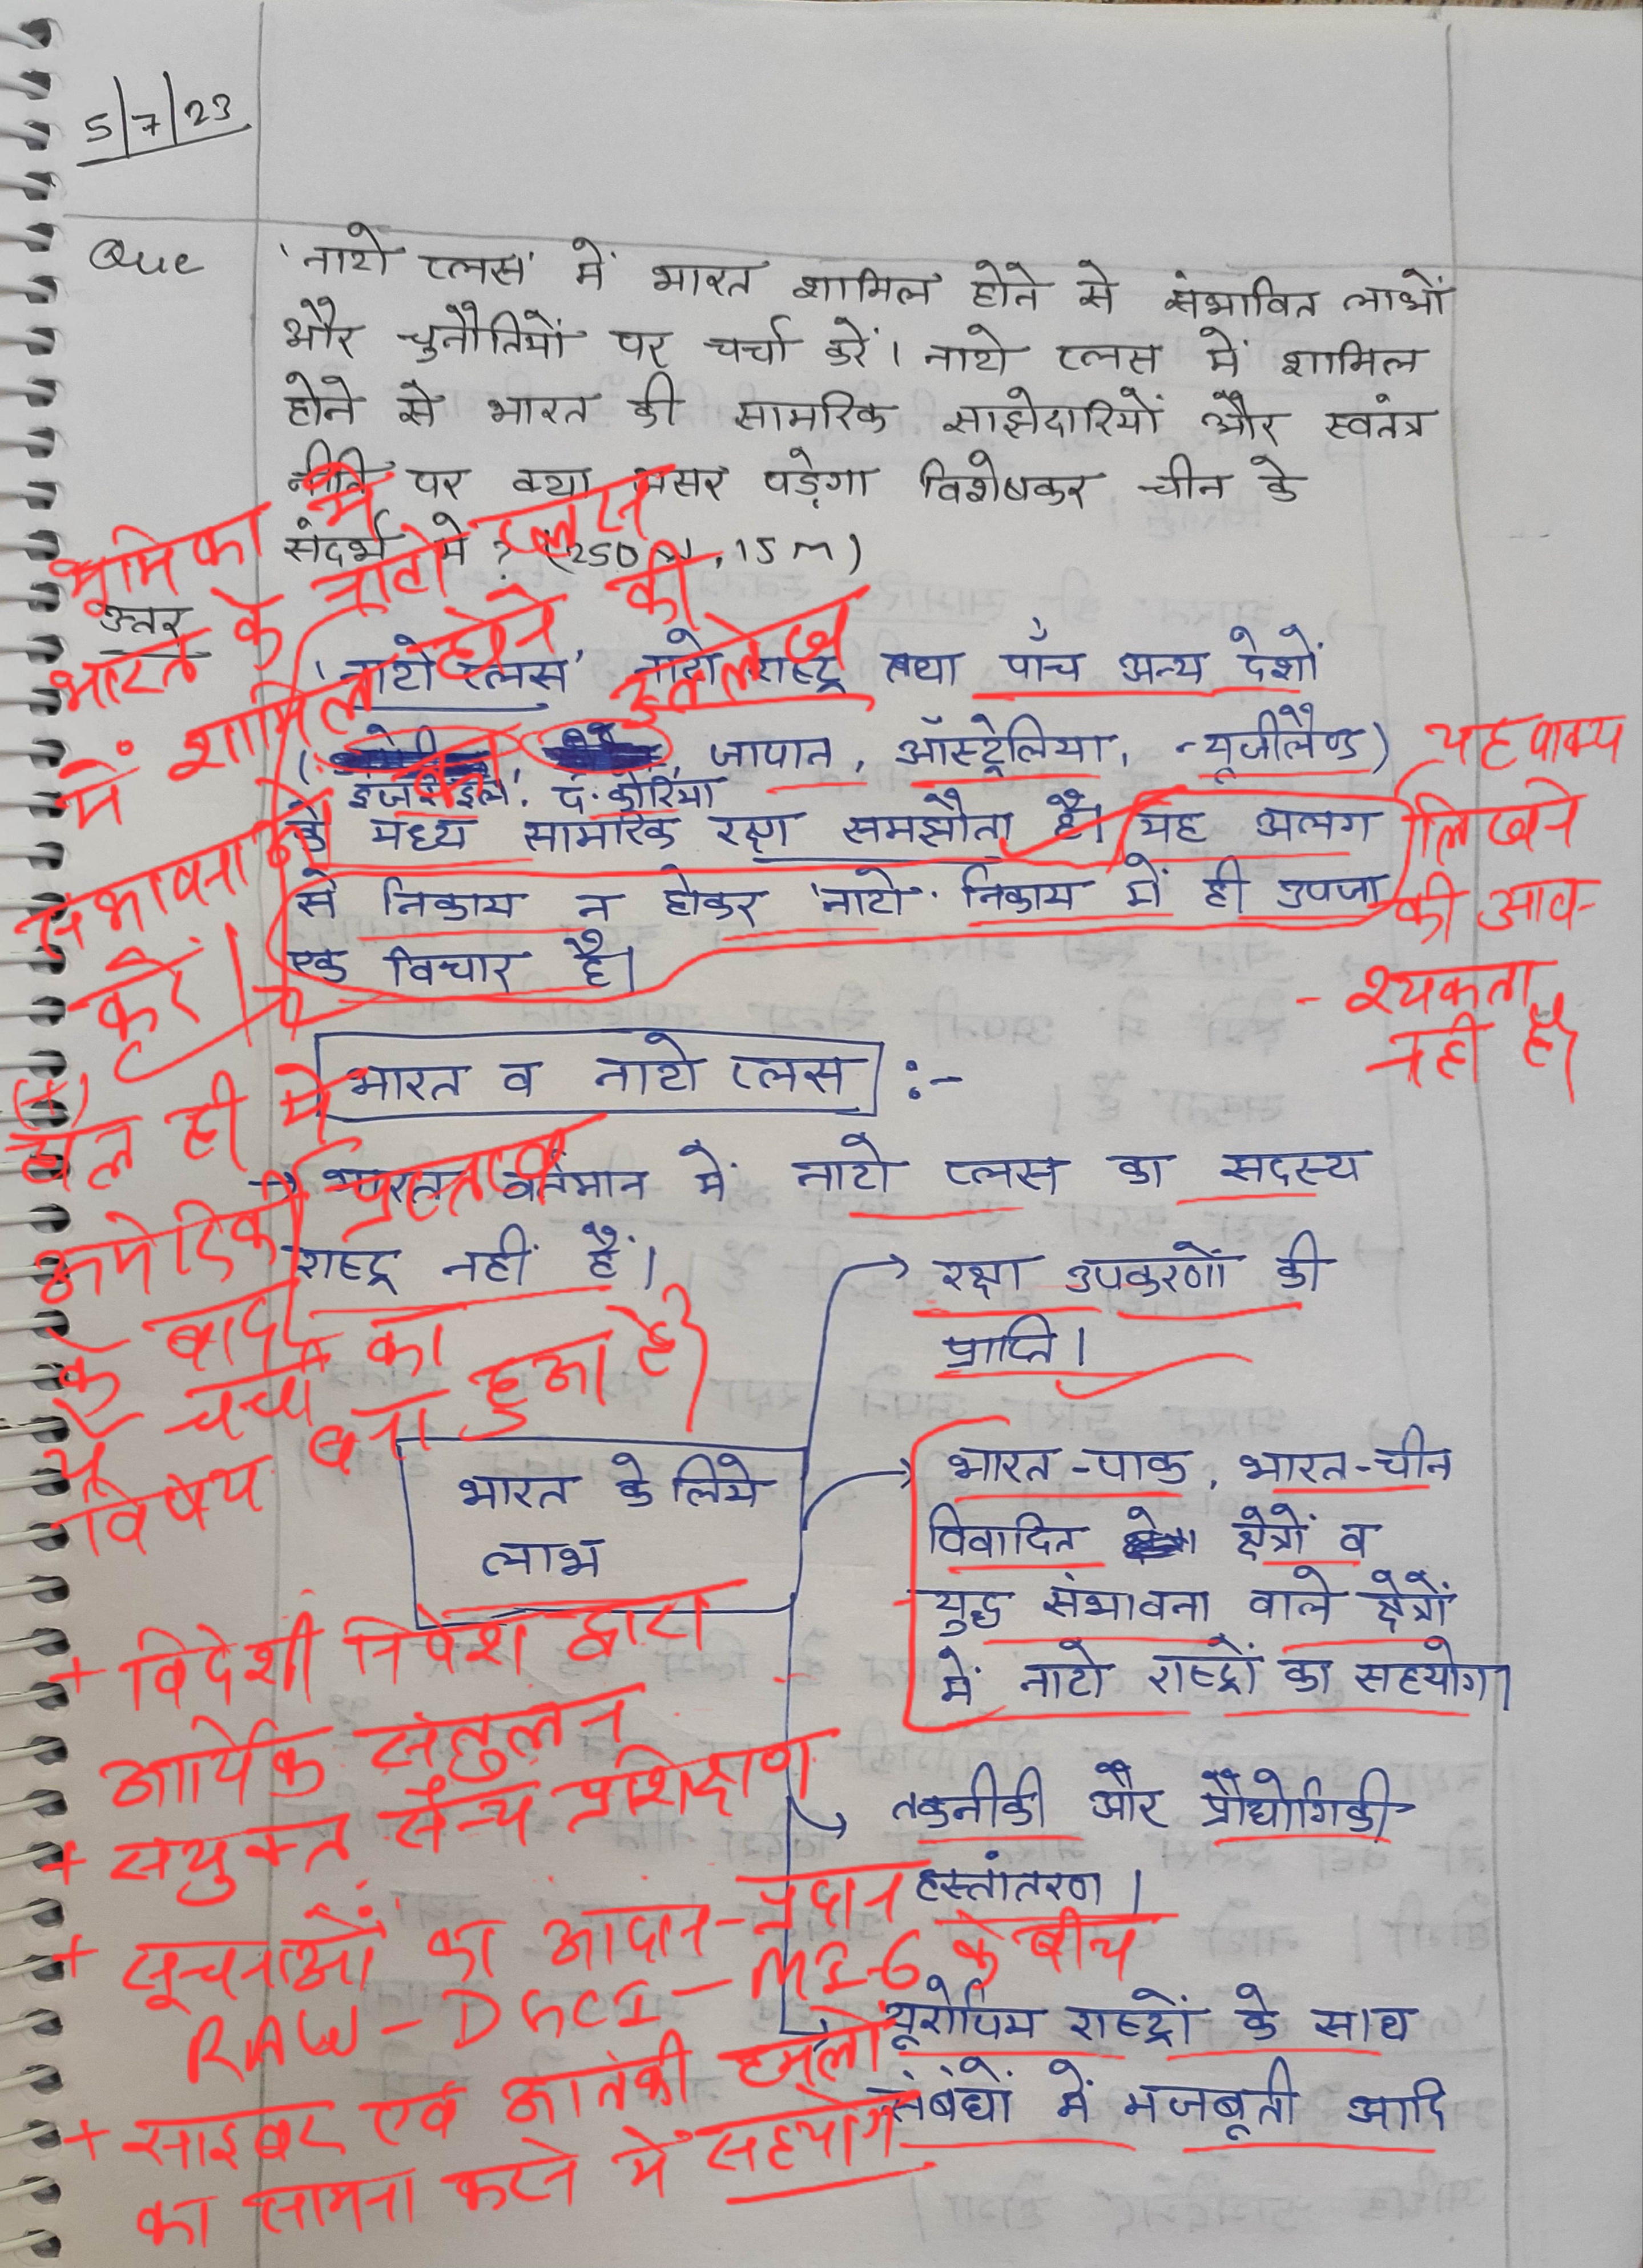 5/7/23
Que 'नाटो प्लस' में भारत शामिल होने से संभावित लाभों
और चुनौतियों पर चर्चा करें। नाटो प्लस में शामिल
होने से भारत की सामरिक साझेदारियों और स्वतंत्र
नीति पर क्या असर पड़ेगा विशेषकर चीन के
संदर्भ में ? (250 w, 15 m)
भूमिका में
भारत के नाटो प्लस
में शामिल होने की
संभावना का उल्लेख
करें।
उत्तर
'नाटो प्लस' नाटो राष्ट्र तथा पाँच अन्य देशों
( जापान, ऑस्ट्रेलिया, न्यूजीलैण्ड)
इजराइल, द. कोरिया
के मध्य सामरिक रक्षा समझौता है। यह अलग
से निकाय न होकर 'नाटो' निकाय में ही उपजा
एक विचार है।
यह वाक्य
लिखने
की आव-
- श्यकता
नहीं है।
भारत व नाटो प्लस :-
→ भारत वर्तमान में नाटो प्लस का सदस्य
राष्ट्र नहीं है।
(+)
हाल ही में
अमेरिकी प्रस्ताव
के बाद
यह चर्चा का
विषय बना हुआ है।
भारत के लिये
लाभ
→ रक्षा उपकरणों की
प्राप्ति।
→ भारत-पाक, भारत-चीन
विवादित क्षेत्रों व
युद्ध संभावना वाले क्षेत्रों
में नाटो राष्ट्रों का सहयोग।
→ तकनीकी और प्रौद्योगिकी
हस्तांतरण।
→ यूरोपिय राष्ट्रों के साथ
संबंधों में मजबूती आदि
+ विदेशी निवेश द्वारा
आर्थिक संतुलन
+ सयुक्त सैन्य प्रशिक्षण
+ सूचनाओं का आदान-प्रदान
RAW - - MI-6 के बीच
+ साइबर एवं आतंकी हमलों
का सामना करने में सहयोग